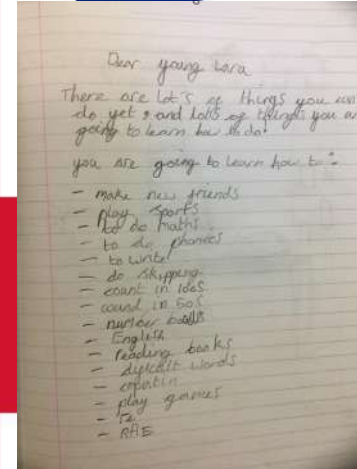 Dear young Lara
There are lot's of things you
do yet, and lots of things you
going to learn how to do.
you are going to learn how to:
- make new friends
- play sports
- to do maths
- to do phonics
- to write
- do skipping
- count in 100s
- count in 50s
- number
- English
- reading books
- words
-
- play games
-
-